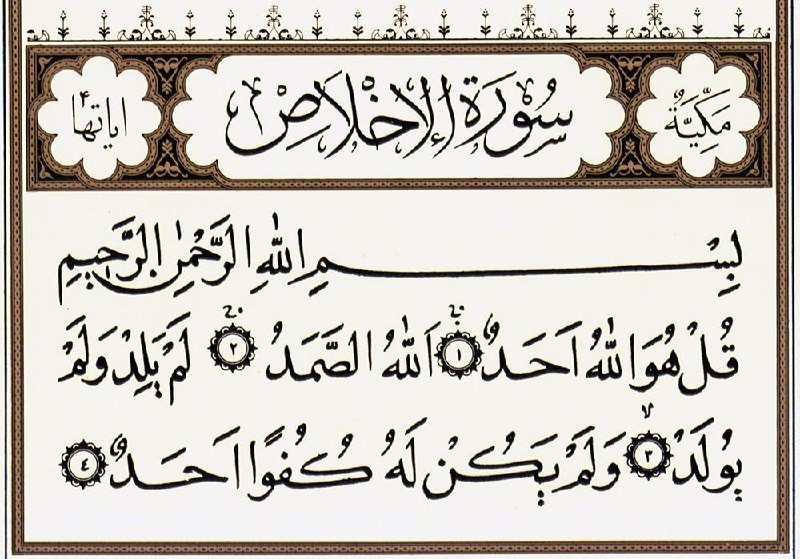 مَكِّيَّةٌ سُوْرَةُ الْاِخْلَاصِ اٰيَاتُهَا ٤
بِسْمِ اللّٰهِ الرَّحْمٰنِ الرَّحِيْمِ
قُلْ هُوَ اللّٰهُ اَحَدٌ ١ اَللّٰهُ الصَّمَدُ ٢ لَمْ يَلِدْ وَلَمْ
يُولَدْ ٣ وَلَمْ يَكُنْ لَهُ كُفُوًا اَحَدٌ ٤